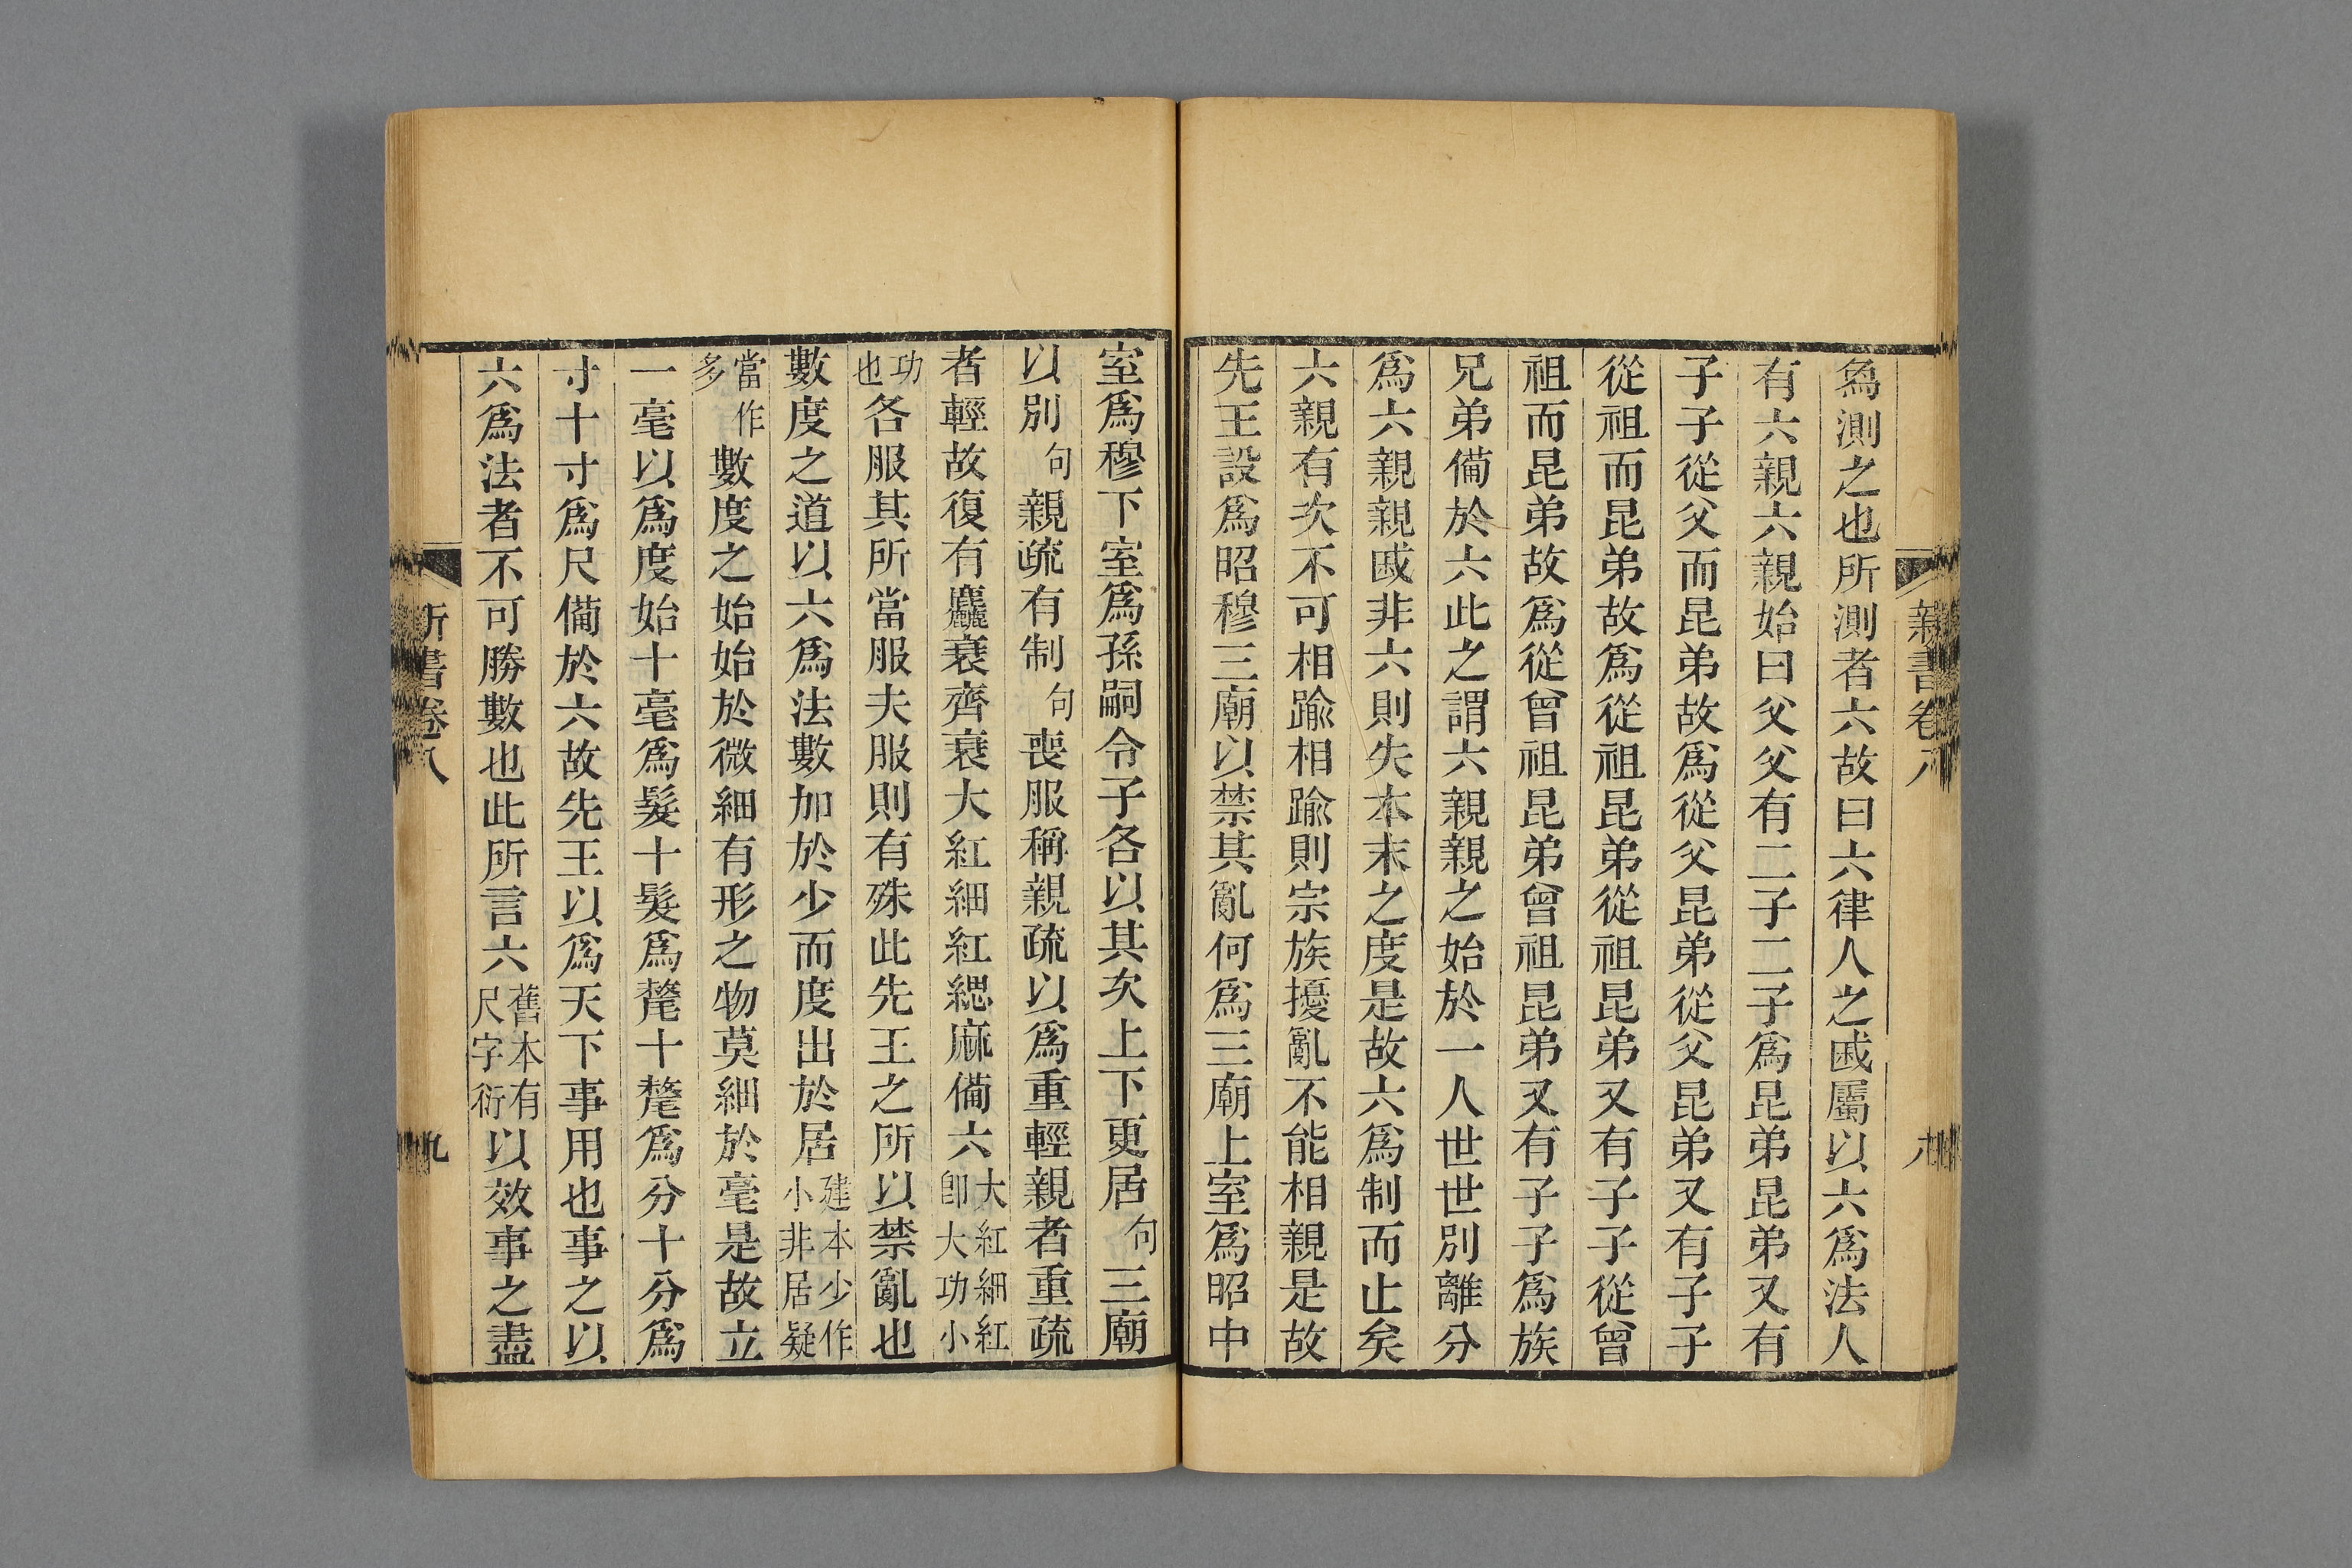 新書卷八
八
爲測之也所測者六故曰六律人之戚屬以六爲法人
有六親六親始曰父父有二子二子爲昆弟昆弟又有
子子從父而昆弟故爲從父昆弟從父昆弟又有子子
從祖而昆弟故爲從祖昆弟從祖昆弟又有子子從曾
祖而昆弟故爲從曾祖昆弟曾祖昆弟又有子子爲族
兄弟備於六此之謂六親親之始於一人世世別離分
爲六親親戚非六則失本末之度是故六爲制而止矣
六親有次不可相踰相踰則宗族擾亂不能相親是故
先王設爲昭穆三廟以禁其亂何爲三廟上室爲昭中
室爲穆下室爲孫嗣令子各以其次上下更居句三廟
以別句親疏有制句喪服稱親疏以爲重輕親者重疏
者輕故復有麤衰齊衰大紅細紅緦麻備六大紅細紅卽大功小
功也各服其所當服夫服則有殊此先王之所以禁亂也
數度之道以六爲法數加於少而度出於居建本少作小非居疑
當作多數度之始始於微細有形之物莫細於毫是故立
一毫以爲度始十毫爲髮十髮爲氂十氂爲分十分爲
寸十寸爲尺備於六故先王以爲天下事用也事之以
六爲法者不可勝數也此所言六舊本有尺字衍以效事之盡
新書卷八
九